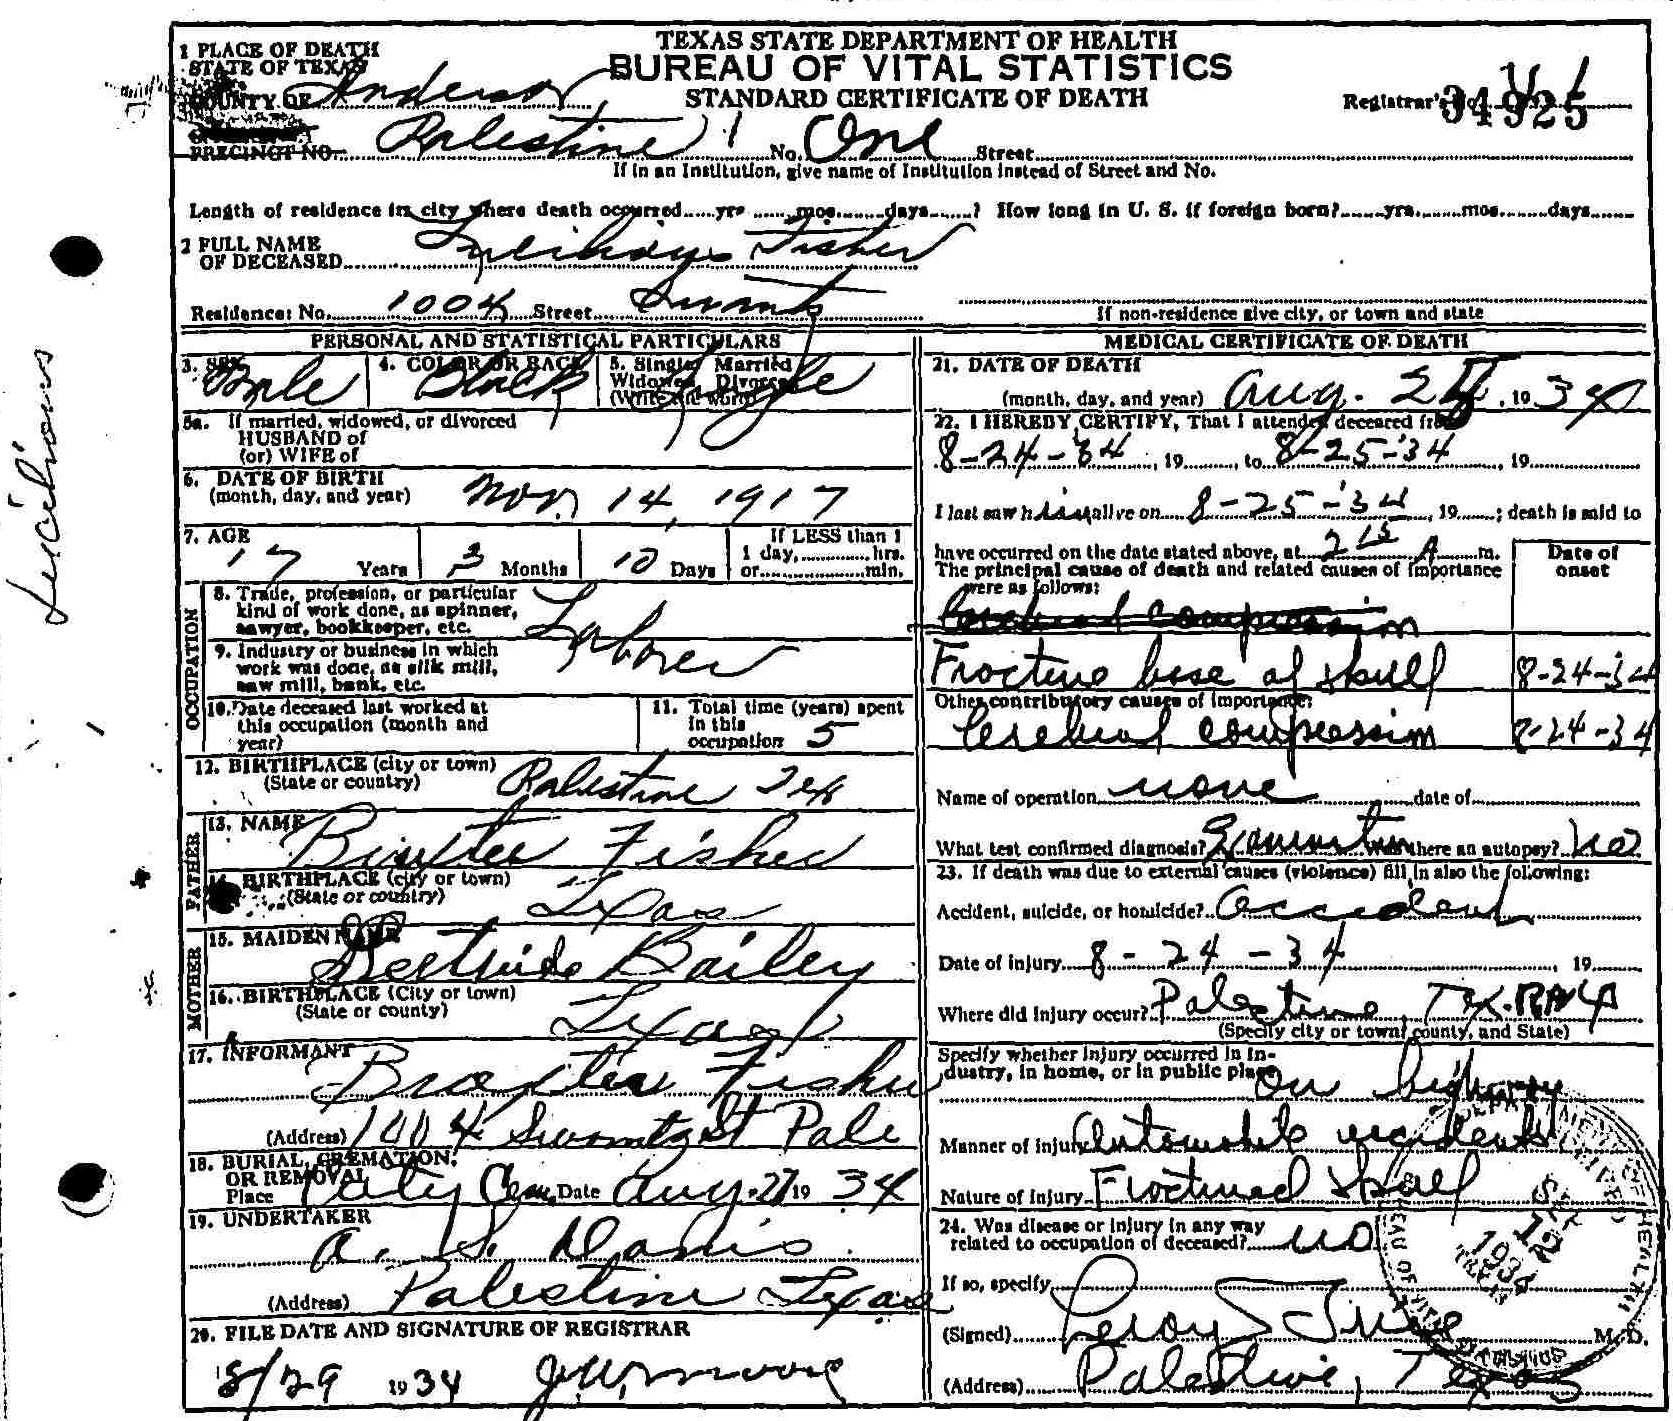 TEXAS STATE DEPARTMENT OF HEALTH
BUREAU OF VITAL STATISTICS
STANDARD CERTIFICATE OF DEATH
1 PLACE OF DEATH
STATE OF TEXAS
COUNTY OF Anderson
Registrar's No. 34925
PRECINCT NO. Palestine 1 No. One Street
If in an Institution, give name of Institution instead of Street and No.
Length of residence in city where death occurred yrs mos. days ? How long in U. S. if foreign born? yrs. mos. days
2 FULL NAME
OF DECEASED Fisher
Residence: No. 1004 Street
If non-residence give city, or town and state
PERSONAL AND STATISTICAL PARTICULARS
3. SEX Male 4. COLOR OR RACE Black 5. Single Married Widowed Divorced (Write the word) Single
5a. If married, widowed, or divorced
HUSBAND of
(or) WIFE of
6. DATE OF BIRTH
(month, day, and year) Nov. 14, 1917
7. AGE
17 Years 3 Months 10 Days If LESS than 1
1 day, hrs.
or min.
OCCUPATION
8. Trade, profession, or particular
kind of work done, as spinner,
sawyer, bookkeeper, etc. Laborer
9. Industry or business in which
work was done, as silk mill,
saw mill, bank, etc.
10. Date deceased last worked at
this occupation (month and
year)
11. Total time (years) spent
in this
occupation 5
12. BIRTHPLACE (city or town)
(State or country) Palestine Tex
FATHER
13. NAME Fisher
14. BIRTHPLACE (city or town)
(State or country) Texas
MOTHER
15. MAIDEN NAME Gertrude Bailey
16. BIRTHPLACE (City or town)
(State or county) Texas
17. INFORMANT
Fisher
(Address) 1004 St Pale
18. BURIAL, CREMATION,
OR REMOVAL
Place City Cem. Date Aug. 27 19 34
19. UNDERTAKER
A. S. Davis
(Address) Palestine Texas
20. FILE DATE AND SIGNATURE OF REGISTRAR
8/29 1934 J.W. Moore
MEDICAL CERTIFICATE OF DEATH
21. DATE OF DEATH
(month, day, and year) Aug. 25, 1934
22. I HEREBY CERTIFY, That I attended deceased from
8-24-'34, 19 , to 8-25-'34, 19
I last saw him alive on 8-25-'34, 19 ; death is said to
have occurred on the date stated above, at 2 15 A m.
The principal cause of death and related causes of importance
were as follows:
Date of
onset
Cerebral compression
Fracture base of skull 8-24-34
Other contributory causes of importance:
Cerebral compression 8-24-34
Name of operation none date of
What test confirmed diagnosis? Examination Was there an autopsy? no
23. If death was due to external causes (violence) fill in also the following:
Accident, suicide, or homicide? Accident
Date of injury 8-24-34, 19
Where did injury occur? Palestine, Tex.
(Specify city or town, county, and State)
Specify whether injury occurred in in-
dustry, in home, or in public place on highway
Manner of injury Automobile accident
Nature of injury Fractured skull
24. Was disease or injury in any way
related to occupation of deceased? no
If so, specify
(Signed) Leroy M. D.
(Address) Palestine, Texas